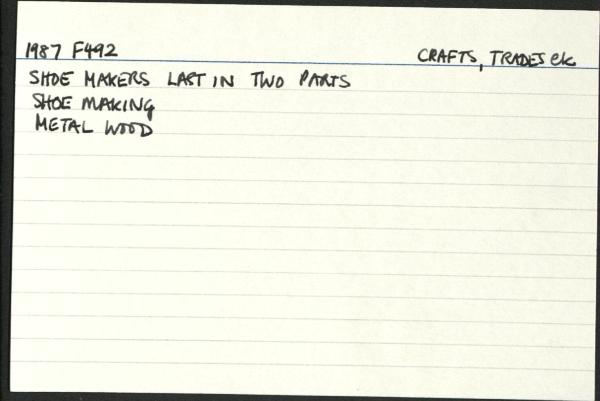 1987 F492 CRAFTS, TRADES etc
SHOE MAKERS LAST IN TWO PARTS
SHOE MAKING
METAL WOOD